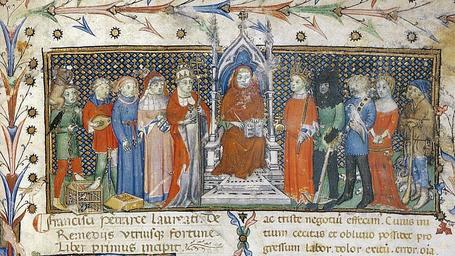 Francisci petrarce laureati. De
Remediis utriusque fortune
Liber primus incipit.
ac triste negotiũ effecim. Cuius ini
tium cecitas et obliuio possidet pro
gressum labor. dolor exitũ. error. oĩa.